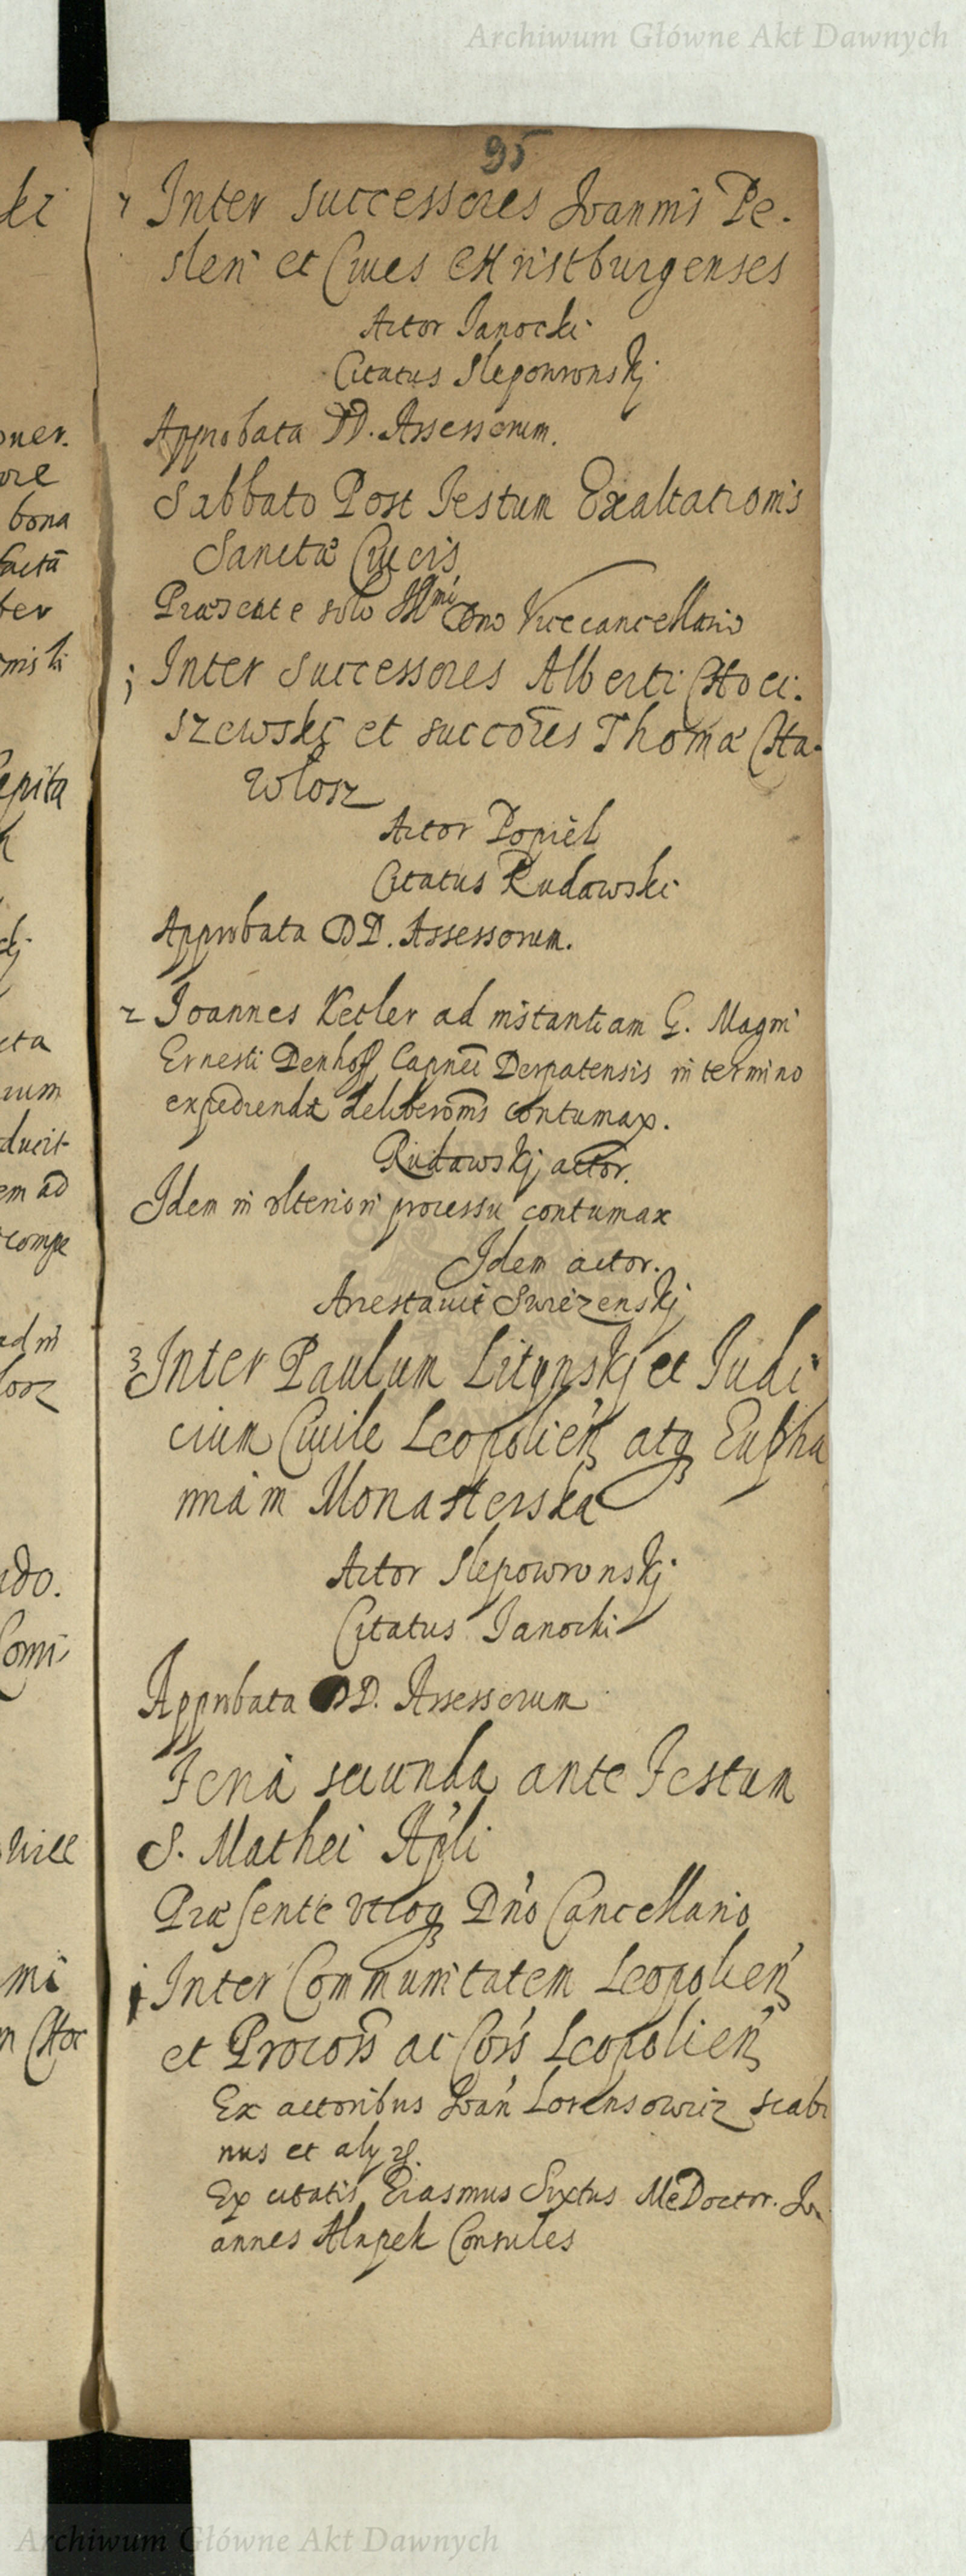 Archiwum Główne Akt Dawnych
95
Inter successores Joannis Pe-
sleri et Cives Christburgenses
Actor Janocki
Citatus Slepowronskj
Approbata DD. Assessorum.
Sabbato Post Festum Exaltationis
Sanctæ Crucis
Præsente solo Illmi Dno Vicecancellario
1 Inter successores Alberti Choci-
szewskj et succōres Thomæ Cha-
wlosz
Actor Popiel
Citatus Rudawski
Approbata DD. Assessorum.
2 Joannes Ketler ad instantiam G. Magni
Ernesti Denhoff Capnēi Derpatensis in termino
expediendæ deliberōnis contumax.
Rudawskj actor.
Idem in ulteriori processu contumax
Idem actor.
Arrestavit Swiezenskj
3 Inter Paulum Litynskj et Judi
cium Civile Leopolien atq Eupha
miam Monasterska
Actor Slepowronskj
Citatus Janocki
Approbata DD. Assessorum
Feria secunda ante Festum
S. Mathei Apli
Præsente utroq Dno Cancellario
1 Inter Communitatem Leopolien
et Procoss ac Coss Leopolien
Ex actoribus Joan Lorensowicz scabi
nus et alij
Ex citatis Erasmus Sixtus Me Doctor. Jo
annes Alnpek Consules
Archiwum Główne Akt Dawnych